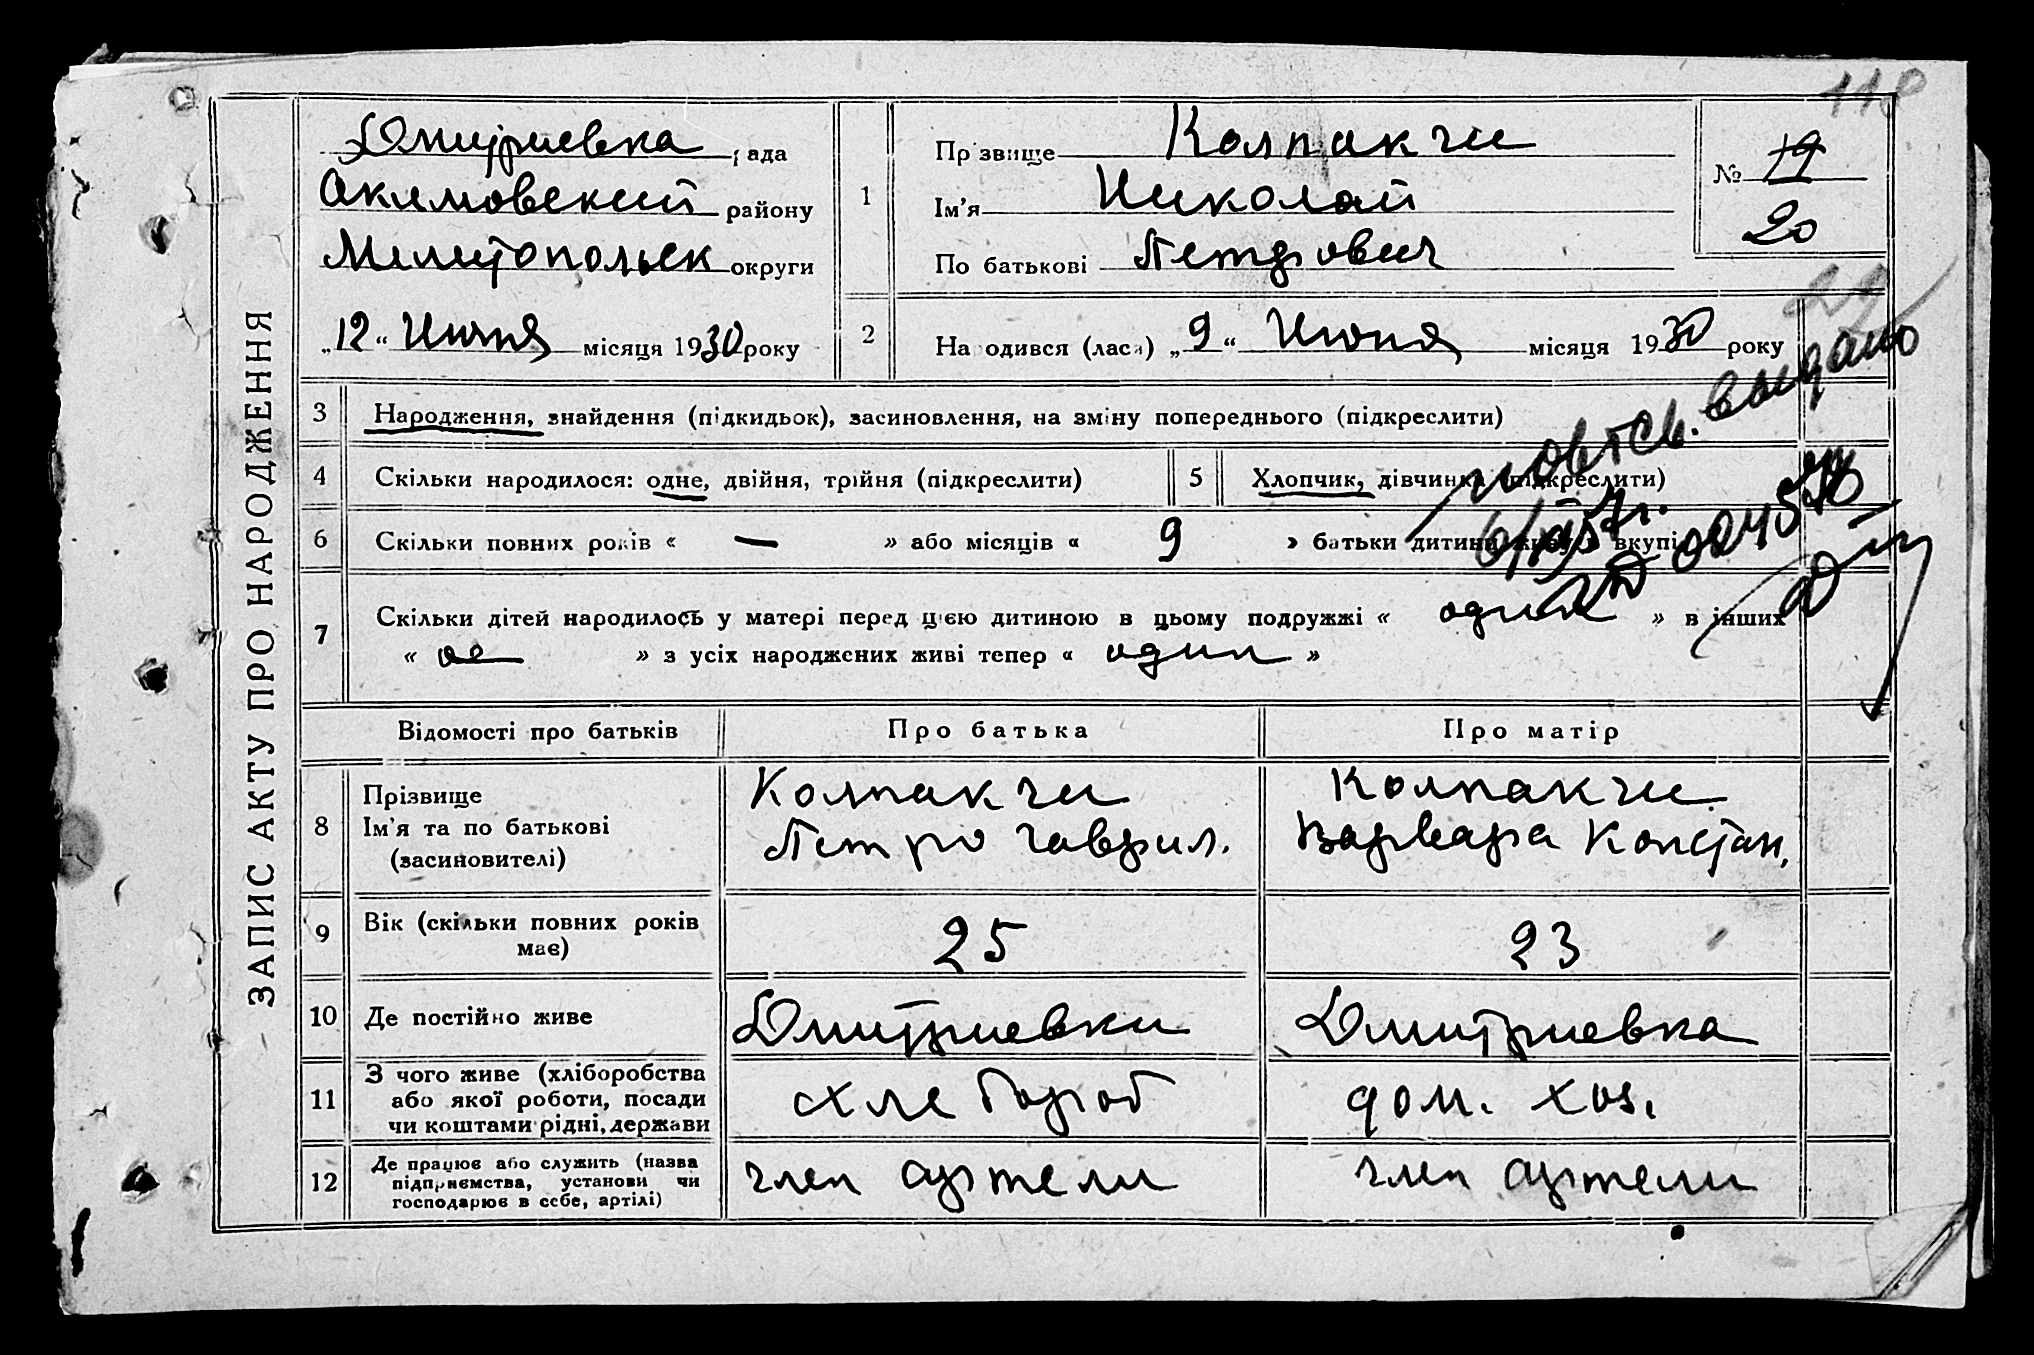 118
ЗАПИС АКТУ ПРО НАРОДЖЕННЯ
Дмитриевка рада
Акимовский району
Мелитопольск округи
„12“ Июня місяця 1930 року
1
Прізвище Колпакчи
Ім'я Николай
По батькові Петрович
№ 19
20
2
Народився (лася) „9“ Июня місяця 1930 року
3 Народження, знайдення (підкидьок), засиновлення, на зміну попереднього (підкреслити)
4 Скільки народилося: одне, двійня, трійня (підкреслити)
5 Хлопчик, дівчинка (підкреслити)
6 Скільки повних років « — » або місяців « 9 » батьки дитини живуть вкупі
повт св. выдано
7 Скільки дітей народилось у матері перед цією дитиною в цьому подружжі « один » в інших
« » з усіх народжених живі тепер « один »
Відомості про батьків Про батька Про матір
8 Прізвище Ім'я та по батькові (засиновителі)
Колпакчи
Петро Гаврил.
Колпакчи
Варвара Констан.
9 Вік (скільки повних років має) 25 23
10 Де постійно живе Дмитриевки Дмитриевка
11 З чого живе (хліборобства або якої роботи, посади чи коштами рідні, держави
хлебороб дом. хоз.
12 Де працює або служить (назва підприємства, установи чи господарює в себе, артілі)
член артели член артели